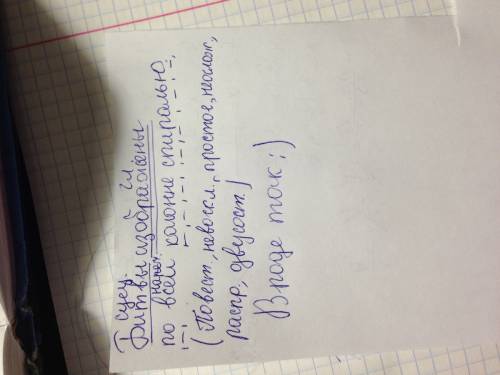 сущ. гл.
Битвы изображены
нареч.
по всей колонне спиралью
(Повест., невоскл., простое, неослож,
распр, двусост.)
Вроде так:)